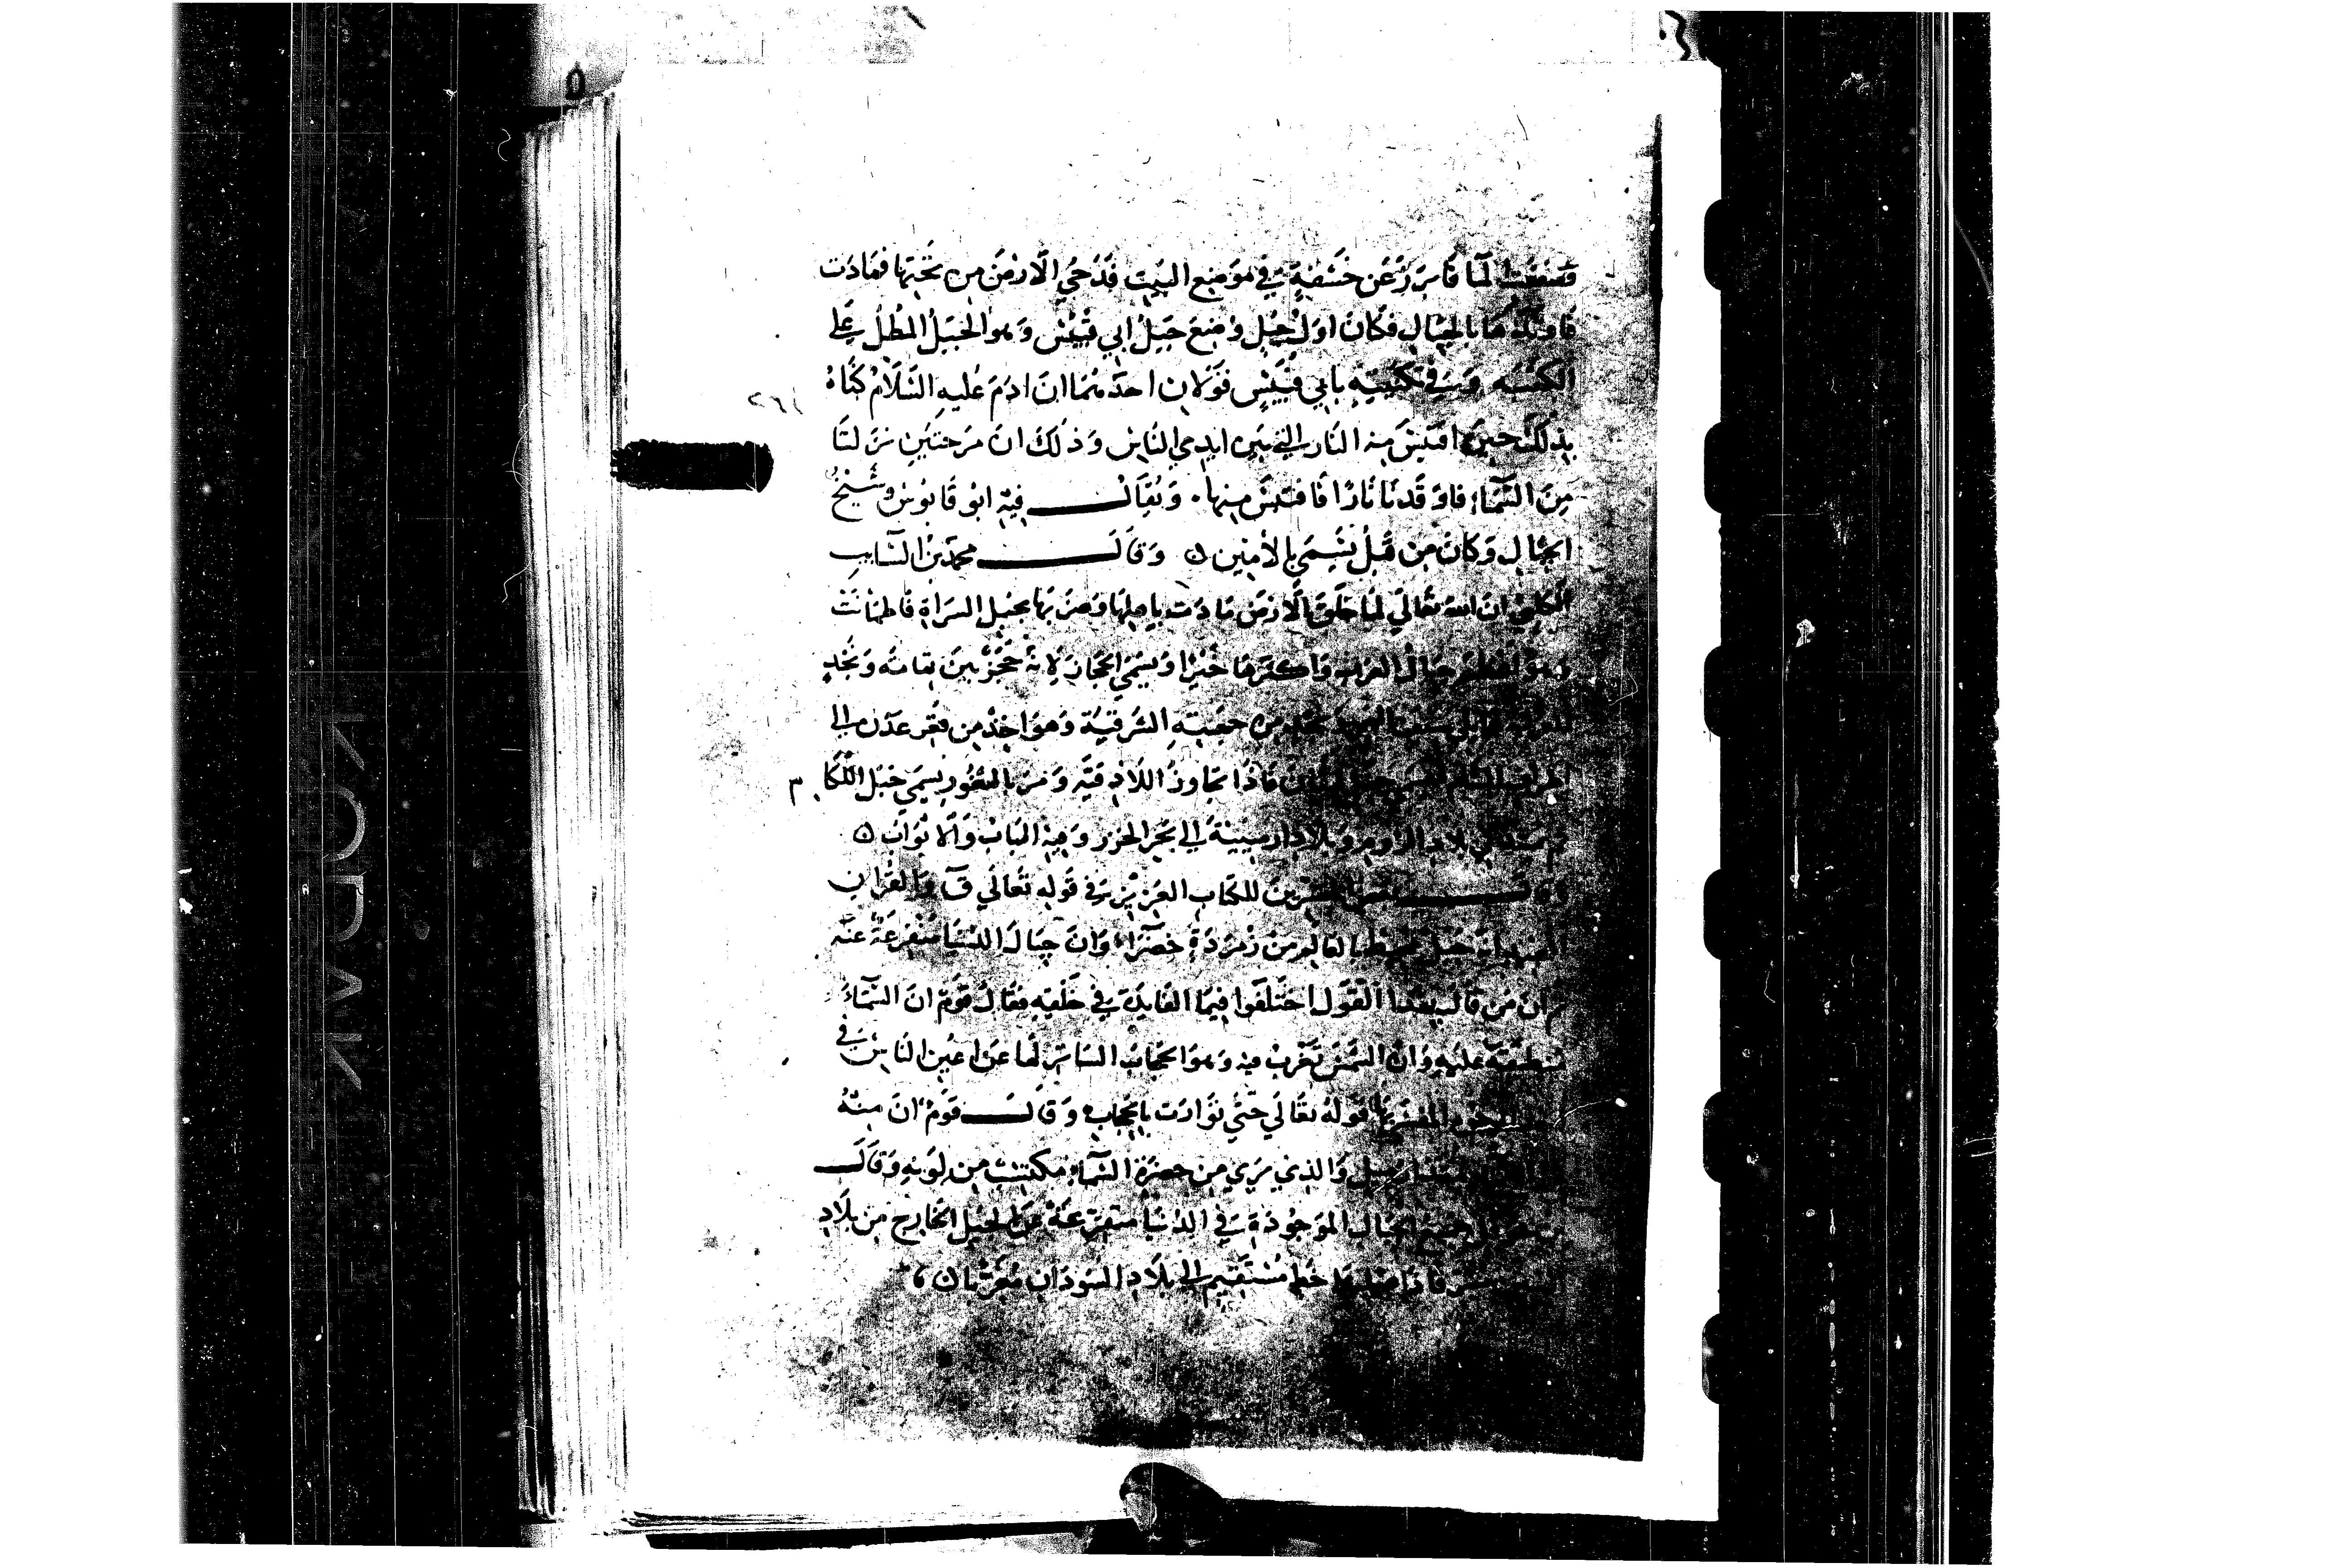 فصفقت الما فابرز عن خشفة في موضع البيت فدحي الارض من تحتها فمادت
فاوتدها بالجبال فكان اول جبل وضع جبل ابي قبيس وهو الجبل المطل علي
الكعبه وفي تكنيته بابي قبيس قولان احدهما ان ادم عليه السلام كناه
بذلك حين اقتبس منه النار التي بين ايدي الناس وذلك ان مرختين نزلتا
من السماء فاوقدتا نارا فاقتبس منها . ويقال فيه ابو قابوس وشيخ
الجبال وكان من قبل يسمي بالامين ه وقال محمد بن السايب
الكلبي ان الله تعالي لما خلق الارض مادت باهلها فضربها بجبل السراة فاطمانت
وهو اعظم جبال العرب واكثرها خيرا ويسمي الحجاز لانه حجز بين تهامه ونجد
من جهته الشرقية وهو اخذ من قعر عدن الي
اطراف الشام فاذا تجاوز اللاذقيه ومر بالثغور يسمي جبل اللكام
ثم يمتد الي بلاد الروم وبلاد ارمينية الي بحر الخزر وفيه الباب والابواب ه
للكتاب العزيز في قوله تعالي ق والقران
المجيد انه جبل محيط بالعالم من زمردة خضراء وان جبال الدنيا متفرعة عنه
ثم ان من قال بهذا القول اختلفوا فيما الفايدة في خلقه فقال قوم ان السماء
مطبقة عليه وان الشمس تغرب فيه وهو الحجاب الساتر لها عن اعين الناس في
قوله تعالي حتي توارت بالحجاب وقال قوم ان منه
والذي يري من خضرة السماء مكتسب من لونه وقال
الجبال الموجودة في الدنيا متفرعة عن الجبل الخارج من بلاد
خط مستقيم الي بلاد السودان مغربا ه